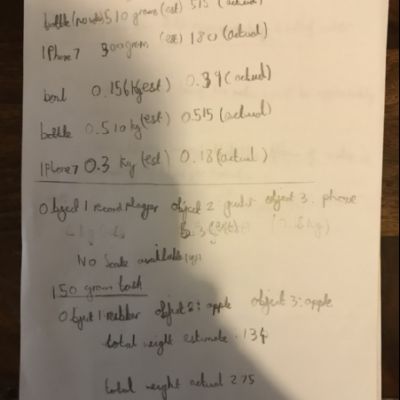 bottle 510 gram (est) 515 (actual)
IPhone 7 300 gram (est) 180 (actual)
bowl 0.156 kg(est) 0.39 (actual)
bottle 0.510 kg (est) 0.515 (actual)
IPhone 7 0.3 kg (est) 0.18 (actual)
Object 1 record player object 2 object 3. phone
5.3 (est)
No scale available (kg)
150 gram task
Object 1: rubber object 2: apple object 3: apple
total weight estimate .134
total weight actual 275